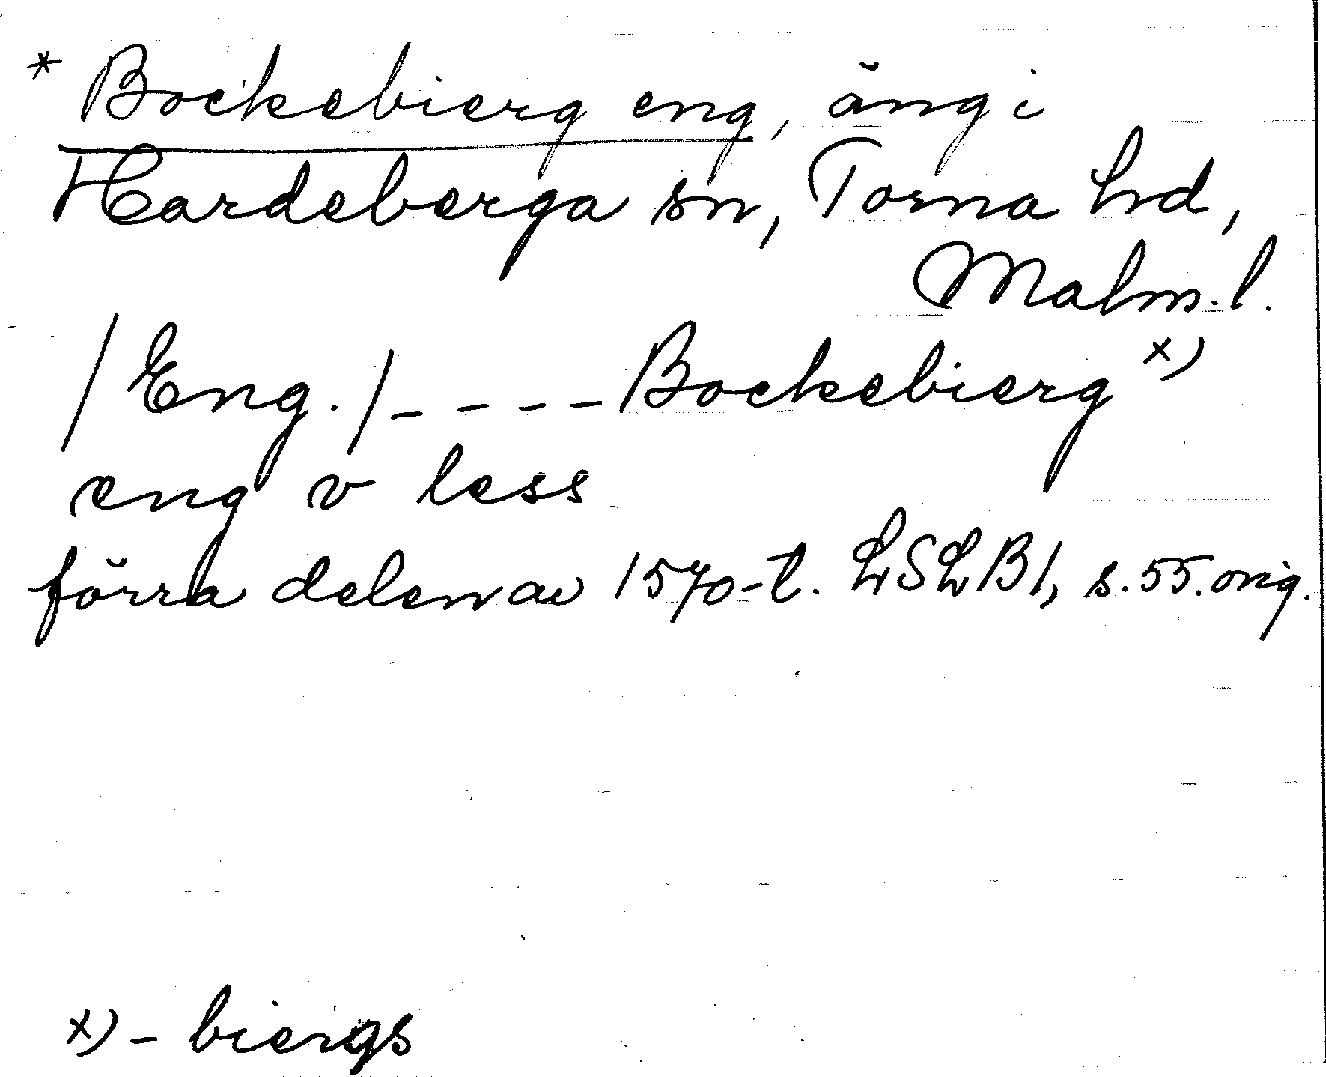 * Bockebierg eng, äng i
Hardeberga sn, Torna hd,
Malm. l.
/Eng./ - - - - Bockebierg x)
eng v less
förra delen av 1570-t. LSLB1, s. 55. orig.
x) - biergs